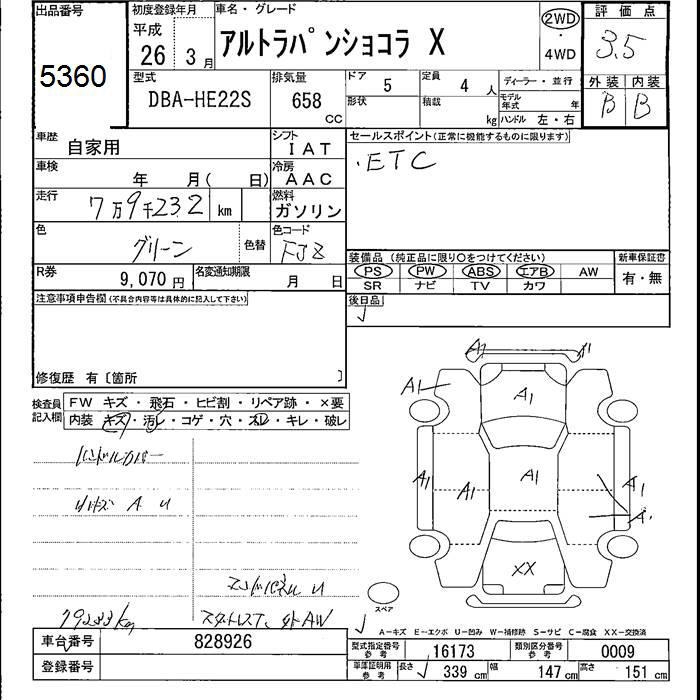 出品番号
5360
初度登録年月
平成
26年 3月
車名・グレード
アルトラパンショコラ X
2WD
・
4WD
評価点
3.5
外装 内装
B B
型式
DBA-HE22S
排気量
658
CC
ドア 5
形状
定員 4 人
積載 kg
ディーラー・並行
モデル年式 年
ハンドル 左・右
車歴 自家用
シフト IAT
車検 年 月( 日)
冷房 AAC
走行 7万9千232 km
燃料 ガソリン
色 グリーン
色替
色コード FJ8
R券 9,070円
名変通知期限 月 日
セールスポイント(正常に機能するものに限ります)
・ETC
装備品(純正品に限り○をつけてください)
PS PW ABS エアB AW
SR ナビ TV カワ
新車保証書
有・無
後日品
注意事項申告欄(不具合内容等は具体的に記入して下さい)
修復歴 有〔箇所 〕
検査員記入欄
FW キズ・飛石・ヒビ割・リペア跡・×要
内装 キズ・汚レ・コゲ・穴・スレ・キレ・破レ
ハンドルカバー
A U
U
79233km
スタットレスT、 AW
A1
A1
A1
A1
A1
A1
A1
XX
スペア
A-キズ E-エクボ U-凹み W-補修跡 S-サビ C-腐食 XX-交換済
車台番号 828926
登録番号
型式指定番号 参考 16173
類別区分番号 参考 0009
車庫証明用 参考 長さ 339 cm 幅 147 cm 高さ 151 cm